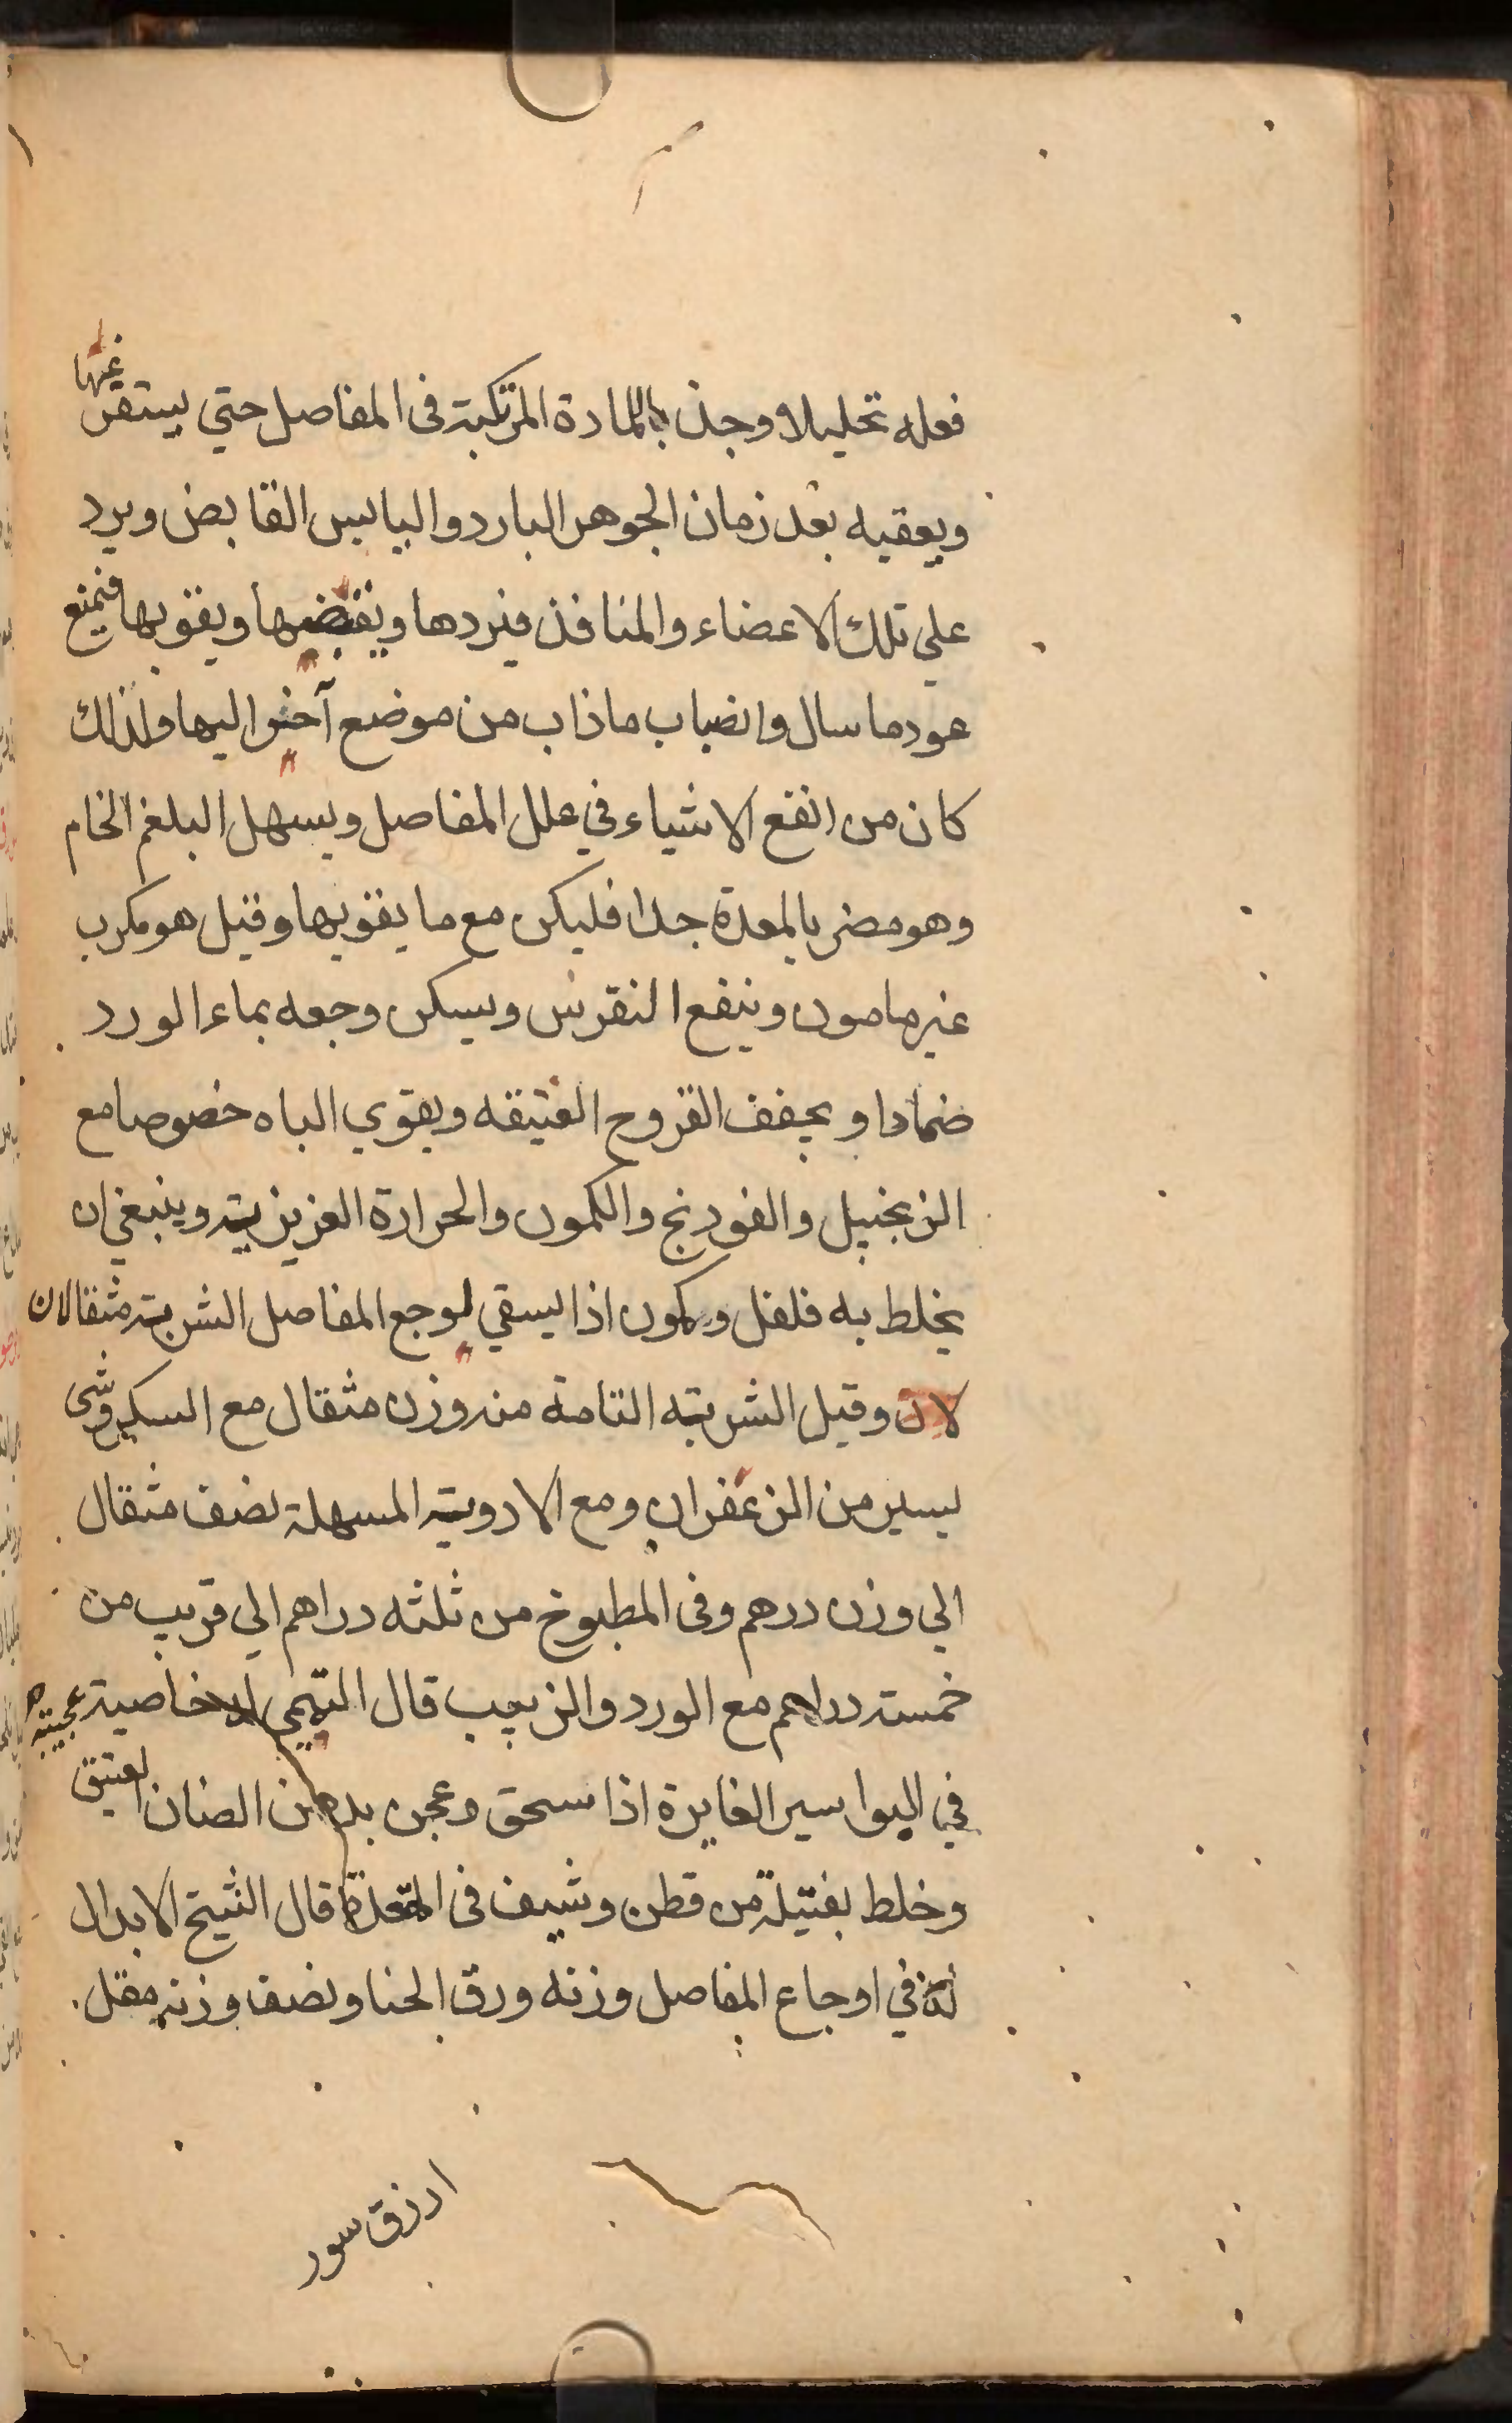 فعله تحليلا وجذبا للمادة المرتكبة فى المفاصل حتي يستقر عنها
ويعقبه بعد زمان الجوهر البارد واليابس القابض ويرد
علي تلك الاعضاء والمنافذ فيردها ويقبضها ويقويها فيمنع
عود ما سال وانصباب ما ذاب من موضع آخر اليها ولذلك
كان من انفع الاشياء في علل المفاصل ويسهل البلغم الخام
وهو مضر بالمعدة جدا فليكن مع ما يقويها وقيل هو مكرب
غير مامون وينفع النقرس ويسكن وجعه بماء الورد
ضمادا ويجفف القروح العتيقه ويقوي الباه خصوصا مع
الزنجبيل والفودنج والكمون والحرارة الغريزية وينبغي ان
يخلط به فلفل وكمون اذا يسقي لوجع المفاصل الشربة مثقالان
لان وقيل الشربة التامة منه وزن مثقال مع السكر وشى
يسير من الزعفران ومع الادوية المسهلة نصف مثقال
الي وزن درهم وفى المطبوخ من ثلثه دراهم الي قريب من
خمسة دراهم مع الورد والزبيب قال التميمي له خاصية عجيبة
في البواسير الغايرة اذا سحق وعجن بدهن الضان العتيق
وخلط بفتيلة من قطن وشيف فى المقعدة قال الشيخ الابدال
له في اوجاع المفاصل وزنه ورق الحنا ونصف وزنه مقل
ارزق سور